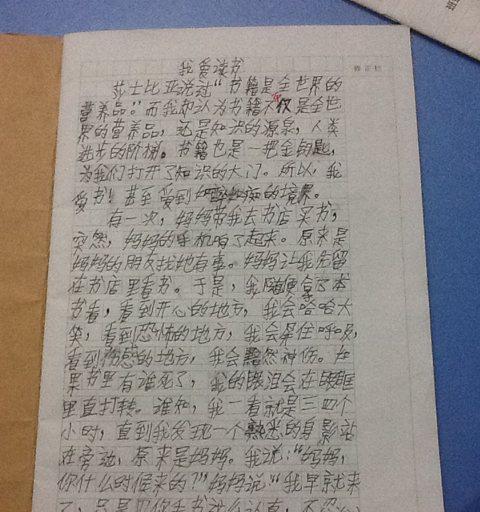 修正栏
我爱读书
莎士比亚说过“书籍是全世界的
营养品。”而我却认为书籍不仅是全世
界的营养品,还是知识的源泉,人类
进步的阶梯。书籍也是一把金钥匙,
为我们打开了知识的大门。所以,我
爱书!甚至爱到如痴的境界。
有一次,妈妈带我去书店买书,
突然,妈妈的手机响了起来。原来是
妈妈的朋友找她有事。妈妈让我先留
在书店里看书。于是,我随便拿了本
书看,看到开心的地方,我会哈哈大
笑,看到恐怖的地方,我会屏住呼吸,
看到伤感的地方,我会黯然神伤。如
果书里有谁死了,我的眼泪会在眼眶
里直打转。谁知,我一看就是三四个
小时,直到我发现一个熟悉的身影站
在旁边,原来是妈妈。我说:“妈妈,
你什么时候来的?”妈妈说“我早就来
了,只是见你看书这么认真,不忍心